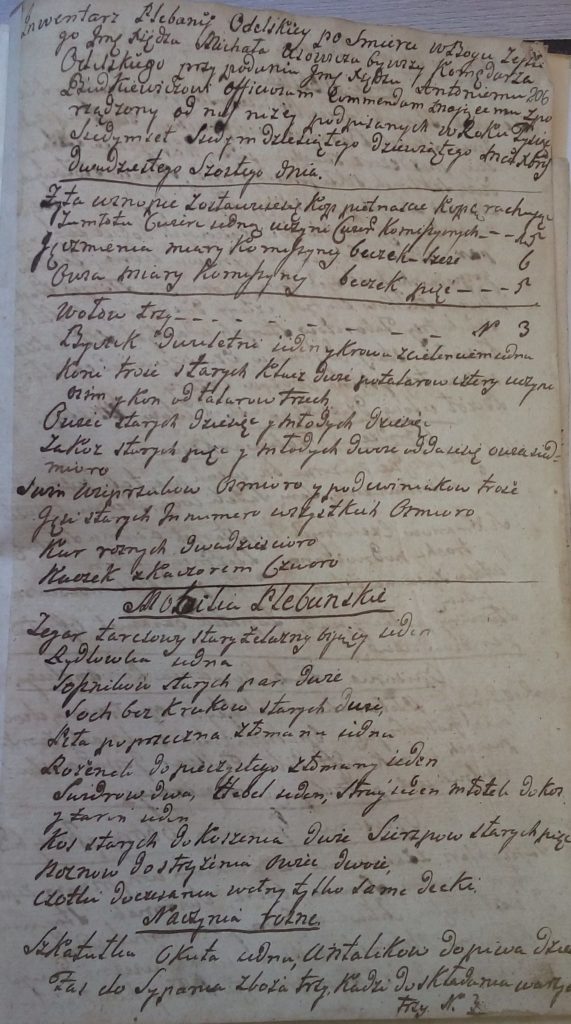 Inwentarz Plebanij Odelskiey po Smierci w Bogu Zeszłe
go Jmć Xiędza Michała bywszy Komędarza
Odelskiego przy podaniu Jmć Xiędzu Antoniemu 206
officiosam Commendam mającemu spo
rządzony od nas niżey podpisanych w Roku Tysiąc
Siedymset Siedym dziesiątego dziewiątego Mca Xbra
dwudziestego Szostego dnia.
Zyta w snopie zostawuie się kop piętnascie kopą rachując
z umłotu jedną Komissyinych - - - 15
Jęczmienia miary Komissyiney beczek szesc 6
Owsa miary Komissyiney beczek pięc - - - 5
Wołow trzy - - - - - - - - N 3
Byczek dwuletni ieden y krowa z cielęciem iedna
Koni troie starych klacz dwie po talarow cztery
y kon od talarow trzech
Owiec starych dziesięc y młodych dziesięc
Za koz starych pięc y młodych dwoie oddaie się owiec sied-
mioro
Swin wieprzukow Osmioro y podswiniakow troie
Gęsi starych in numero wszystkich Osmioro
Kur roznych dwadziescioro
Kaczek z kaczorem Czworo
Mobilia Plebanskie
Zegar tarczowy stary żelazny biiący ieden
Rydlowka iedna
Sosznikow starych par dwie
Soch bez krukow starych dwie,
Piła poprzeczna złomana iedna
Rożenek do pieczystego złomany ieden
Swidrow dwa, Hebel ieden, Strug ieden młotek do kos
y ieden
Kos starych do koszenia dwie Sierzpow starych pięc
Noznow do strzyżenia owiec dwoie,
do czesania wełny tylko same decki.
Naczynia rożne.
Szkatułka Okuta iedna, Antalikow do piwa
do Sypania zboża trzy, Kadzi do składania
trzy N. 3